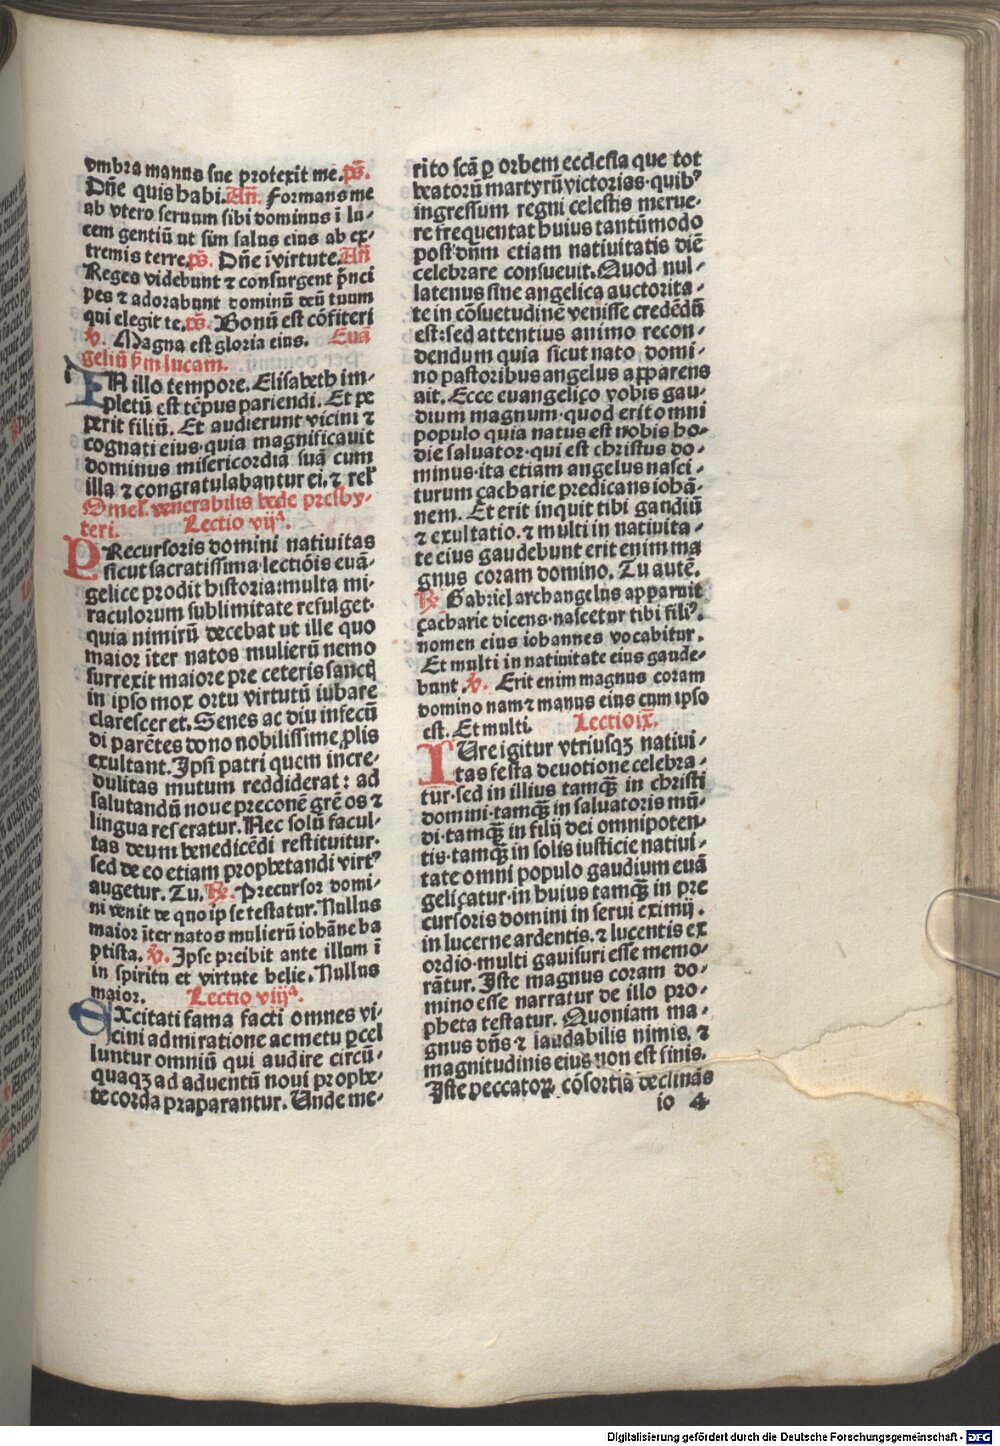 vmbra manus sue protexit me. p̄s.
Dn̄e quis habi. Añ. Formans me
ab vtero seruum sibi dominus ī lu⸗
cem gentiū ut sim salus eius ab ex⸗
tremis terre. p̄s. Dn̄e ī virtute. Añ
Reges videbunt ⁊ consurgent p̄nci
pes ⁊ adorabunt dominū deū tuum
qui elegit te. p̄s. Bonū est cōfiteri
℣. Magna est gloria eius. Euā
geliū s̄m lucam.
IN illo tempore. Elisabeth im⸗
pletū est tēpus pariendi. Et pe
perit filiū. Et audierunt vicini ⁊
cognati eius·quia magnificauit
dominus misericordiā suā cum
illa ⁊ congratulabantur ei. ⁊ rel̓
Omel̓. venerabilis bede presby⸗
teri. Lectio vijª.
PRecursoris domini natiuitas
sicut sacratissima·lectiōis euā⸗
gelice prodit historia:multa mi⸗
raculorum sublimitate refulget·
quia nimirū decebat ut ille quo
maior īter natos mulierū nemo
surrexit maiore pre ceteris sanctꝭ
in ipso mox ortu virtutū iubare
claresceret. Senes ac diu infecū
di parētes dono nobilissime ꝓlis
exultant. Ipsi patri quem incre⸗
dulitas mutum reddiderat: ad
salutandū noue preconē grē os ⁊
lingua reseratur. Nec solū facul⸗
tas deum benedicēdi restituitur·
sed de eo etiam prophetandi virtꝰ
augetur. Tu. ℟. Precursor domi⸗
ni venit de quo ip se testatur. Nullus
maior īter natos mulierū iohāne ba
ptista. ℣. Ipse preibit ante illum ī
in spiritu et virtute helie. Nullus
maior. Lectio viijª.
EXcitati fama facti omnes vi⸗
cini admiratione ac metu ꝑcel
luntur omniū qui audire circū⸗
quaqꝫ ad aduentū noui prophe⸗
te corda praparantur. Unde me⸗
rito scā ꝑ orbem ecclesia que tot
beatorū martyrū victorias·quibꝰ
ingressum regni celestis merue⸗
re frequentat huius tantūmodo
post dn̄m etiam natiuitatis diē
celebrare consueuit. Quod nul⸗
latenus sine angelica auctorita⸗
te in cōsuetudinē venisse credēdū
est:sed attentius animo recon⸗
dendum quia sicut nato domi⸗
no pastoribus angelus apparens
ait. Ecce euangelico vobis gau⸗
dium magnum·quod erit omni
populo quia natus est nobis ho⸗
die saluator·qui est christus do⸗
minus·ita etiam angelus nasci⸗
turum çacharie predicans iohā⸗
nem. Et erit inquit tibi gaudiū
⁊ exultatio. ⁊ multi in natiuita⸗
te eius gaudebunt erit enim ma
gnus coram domino. Tu autē.
℟. Gabriel archangelus apparuit
çacharie dicens·nascetur tibi filiꝰ.
nomen eius iohannes vocabitur.
Et multi in natiuitate eius gaude⸗
bunt. ℣. Erit enim magnus coram
domino nam ⁊ manus eius cum ipso
est. Et multi. Lectio ix̄.
IUre igitur vtriusqꝫ natiui⸗
tas festa deuotione celebra⸗
tur·sed in illius tamqꝫ̄ in christi
domini·tamqꝫ̄ in saluatoris mū⸗
di·tamqꝫ̄ in filij dei omnipoten⸗
tis·tamqꝫ̄ in solis iusticie natiui⸗
tate omni populo gaudium euā
geliçatur·in huius tamqꝫ̄ in pre
cursoris domini in serui eximij.
in lucerne ardentis. ⁊ lucentis ex
ordio·multi gauisuri esse memo⸗
rātur. Iste magnus coram do⸗
mino esse narratur de illo pro⸗
pheta testatur. Quoniam ma⸗
gnus dn̄s ⁊ laudabilis nimis. ⁊
magnitudinis eius non est finis.
Iste peccatoꝝ cōsortis declinās
io 4
Digitalisierung gefördert durch die Deutsche Forschungsgemeinschaft - DFG